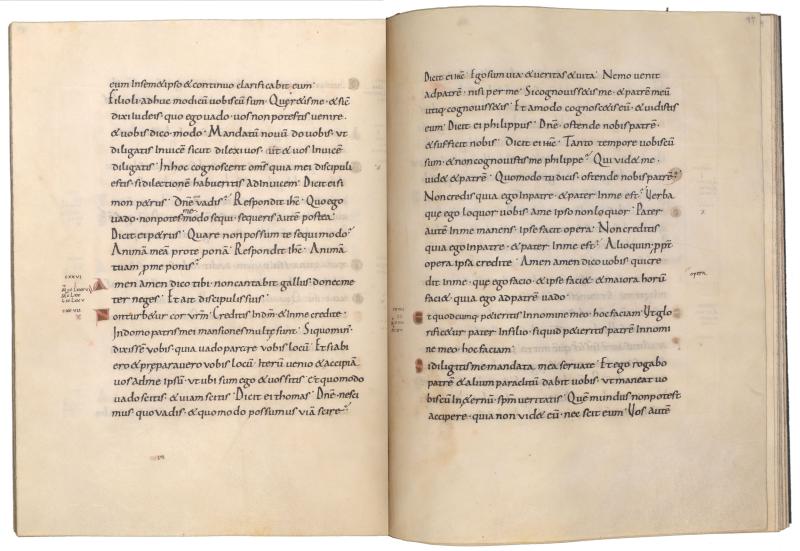 eum Insemetipso & continuo clarificabit eum·
Filioli adhuc modicū uobiscū sum· Queretis me· & sic̄
dixi iudeis quo ego uado· uos non potestis uenire·
& uobis dico· modo· Mandatū nouū do uobis· ut
diligatis Inuicē sicut dilexi uos· ut & uos Inuicē
diligatis· In hoc cognoscent om̄s quia mei discipuli
estis· si dilectionē habueritis ad Inuicem· Dicit ei si
mon petrus· Dn̄e uadis? Respondit ih̄c· Quo ego
uado· non potes me modo sequi· sequeris autē postea·
Dicit ei petrus· Quare non possum te sequi modo?
Animā meā pro te ponā· Respondit ih̄c· Animā
tuam p̱ me ponis?
CXXVI
Amen amen dico tibi· non cantabit gallus· donec me
ter neges· Et ait discipulis suis·
CXXVII
X
Non turbetur cor ur̄m· Creditis Indm̄· & In me credite·
In domo patris mei mansiones multę sunt· Si quomin·
dixissē uobis· quia uado parare uobis locū· Et si abi
ero & preparauero uobis locū· Iterū uenio & accipiā
uos ad me ipsū· ut ubi sum ego & uos sitis· Et quo modo
uado scitis· & uiam scitis· Dicit ei thomas· Dn̄e· nesci
mus quo uadis· & quo modo possumus uiā scire?
Dicit ei ih̄c· Ego sum uia· & ueritas & uita· Nemo uenit
ad patrē· nisi per me· Si cognouissetis me· & patrē meū
utiq; cognouissetis· Et amodo cognoscetis eū· & uidistis
eum· Dicit ei philippus· Dn̄e· ostende nobis patrē·
& sufficit nobis· Dicit ei ih̄c· Tanto tempore uobiscū
sum· & non cognouistis me philippe? Qui uidet me·
uidet & patrē· Quomodo tu dicis· ostende nobis patrē?
Non credis quia ego In patre· & pater In me est? Uerba
quę ego loquor uobis· A me ipso non loquor· Pater
autē In me manens· ipse facit opera· Non creditis
quia ego In patre· & pater In me est? Alioquin· ppt̄
opera ipsa credite· Amen amen dico uobis qui cre
opera
dit In me· quę ego facio· & ipse faciet· & maiora horū
faciet· quia ego ad patrē uado·
Et quodcumq; petieritis In nomine meo· hoc faciam· Ut glo
rificetur pater In filio· si quid petieritis patrē In nomi
ne meo· hoc faciam·
Si diligitis me mandata mea seruate· Et ego rogabo
patrē· & alium paraclitū dabit uobis· ut maneat uo
biscū In eternū· spm̄ ueritatis· Quē mundus non potest
accipere· quia non uidet eū· nec scit eum· Uos autē